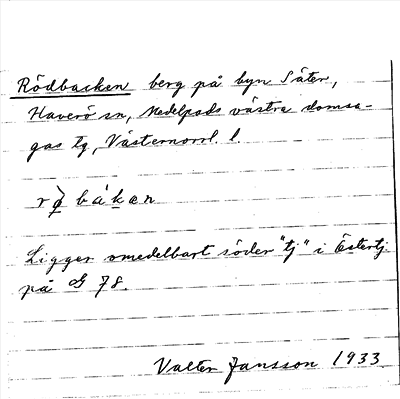 Rödbacken berg på byn Säter,
Haverö sn, Medelpads västra domsa-
gas tg, Västernorrl. l.
báken
Ligger omedelbart söder "tj" i Östertj.
på G 78.
Valter Jansson 1933